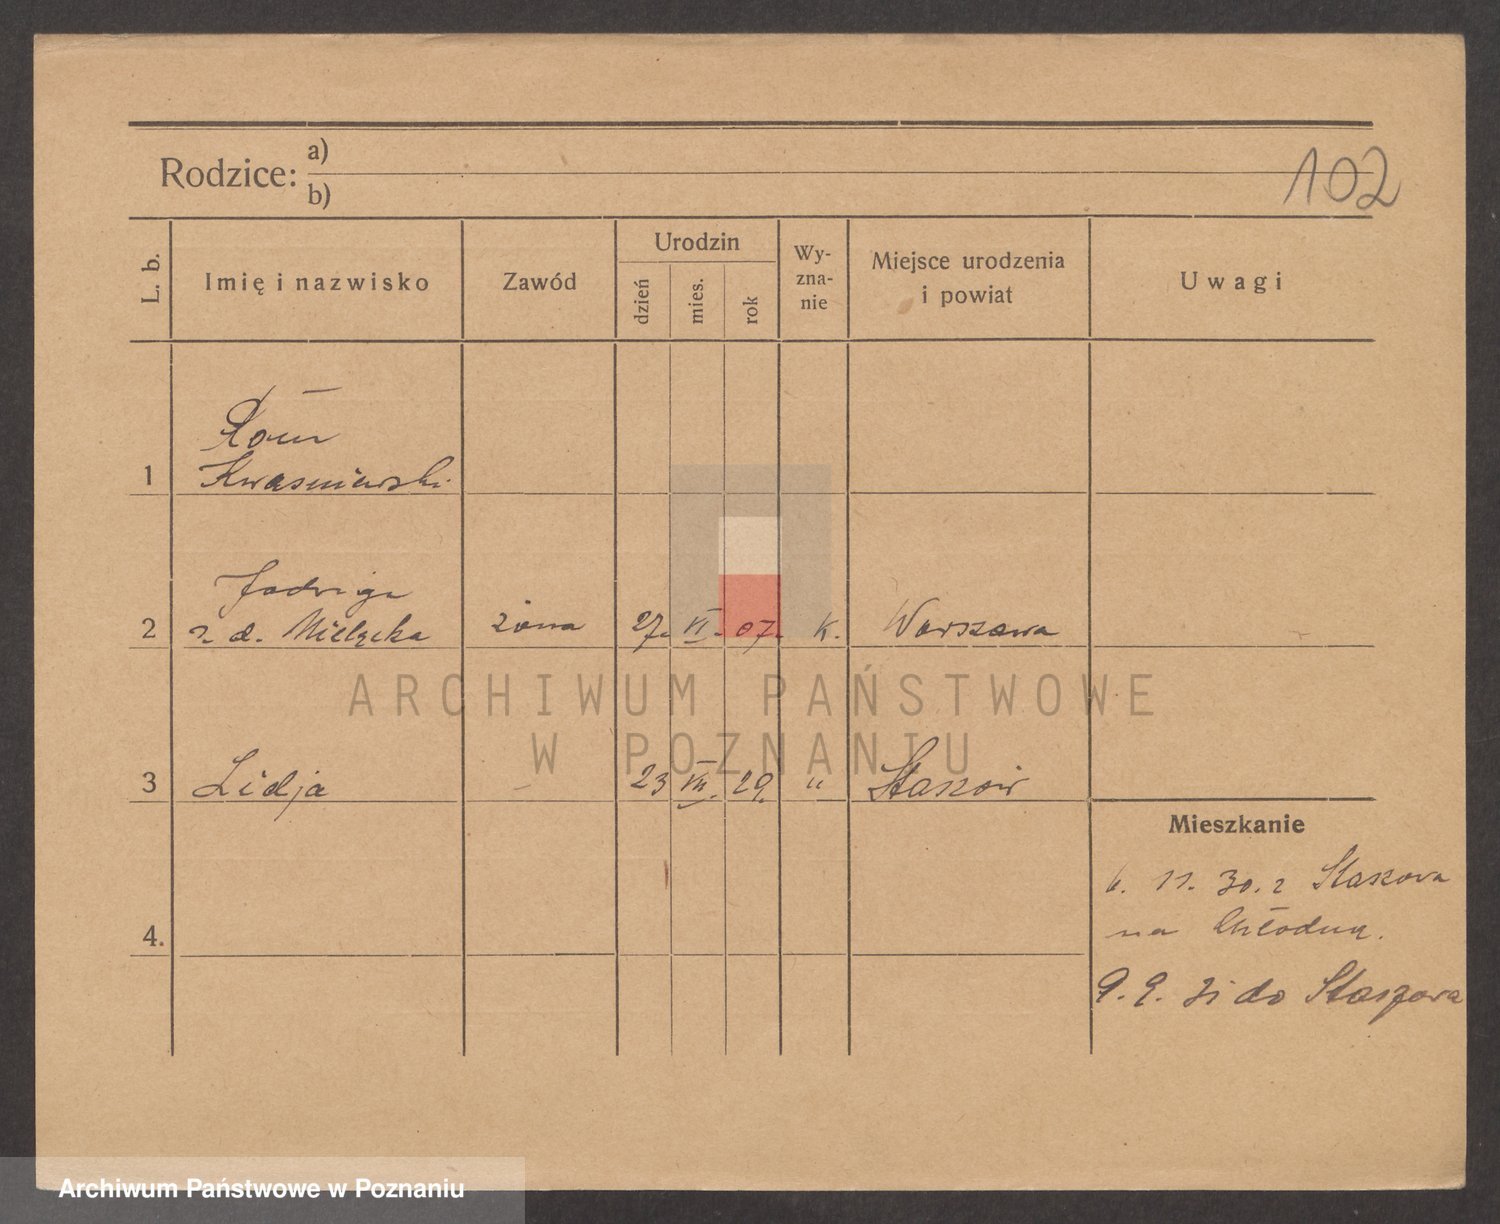 Rodzice: a)
b)
102
L. b.
Imię i nazwisko
Zawód
Urodzin
dzień
mies.
rok
Wy-
zna-
nie
Miejsce urodzenia
i powiat
Uwagi
1
Kwasniewski
2
Jadwiga
z d. Mielęcka żona 27. VI. 07. K. Warszawa
3 Lidja – 23 VII. 29. " Staszów
4.
Mieszkanie
6. 11. 30. z Staszowa
na Chłodną.
9. 9. 31 do Staszowa
ARCHIWUM PAŃSTWOWE
W POZNANIU
Archiwum Państwowe w Poznaniu